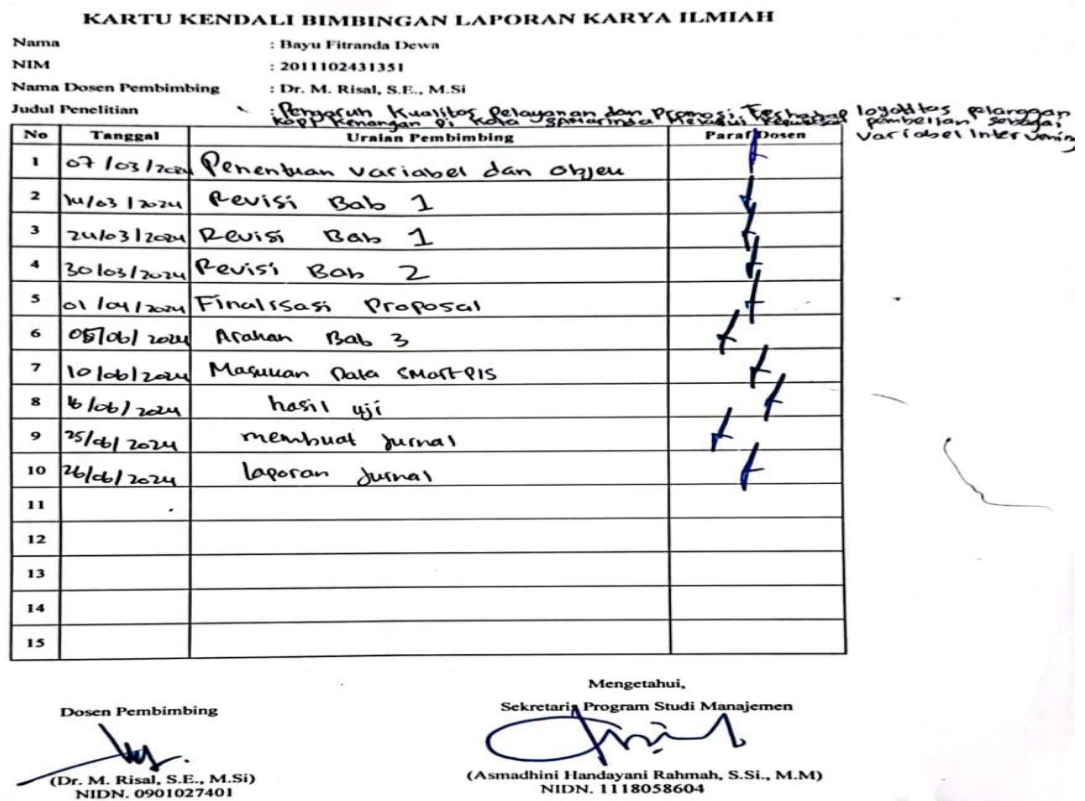 KARTU KENDALI BIMBINGAN LAPORAN KARYA ILMIAH
Nama : Bayu Fitranda Dewa
NIM : 2011102431351
Nama Dosen Pembimbing : Dr. M. Risal, S.E., M.Si
Judul Penelitian : Pengaruh Kualitas Pelayanan dan Promosi Terhadap loyalitas pelanggan
Kopi Kenangan Di Kota SAMarinda Melalui pembelian sebagai
Variabel Intervening
No Tanggal Uraian Pembimbing Paraf Dosen
1 07/03/2024 Penentuan variabel dan objek
2 14/03/2024 Revisi Bab 1
3 24/03/2024 Revisi Bab 1
4 30/03/2024 Revisi Bab 2
5 01/04/2024 Finalisasi Proposal
6 05/06/2024 Arahan Bab 3
7 10/06/2024 Masukan Data SMartPLS
8 16/06/2024 hasil uji
9 25/06/2024 membuat jurnal
10 26/06/2024 laporan jurnal
11
12
13
14
15
Mengetahui,
Dosen Pembimbing Sekretaris Program Studi Manajemen
(Dr. M. Risal, S.E., M.Si) (Asmadhini Handayani Rahmah, S.Si., M.M)
NIDN. 0901027401 NIDN. 1118058604